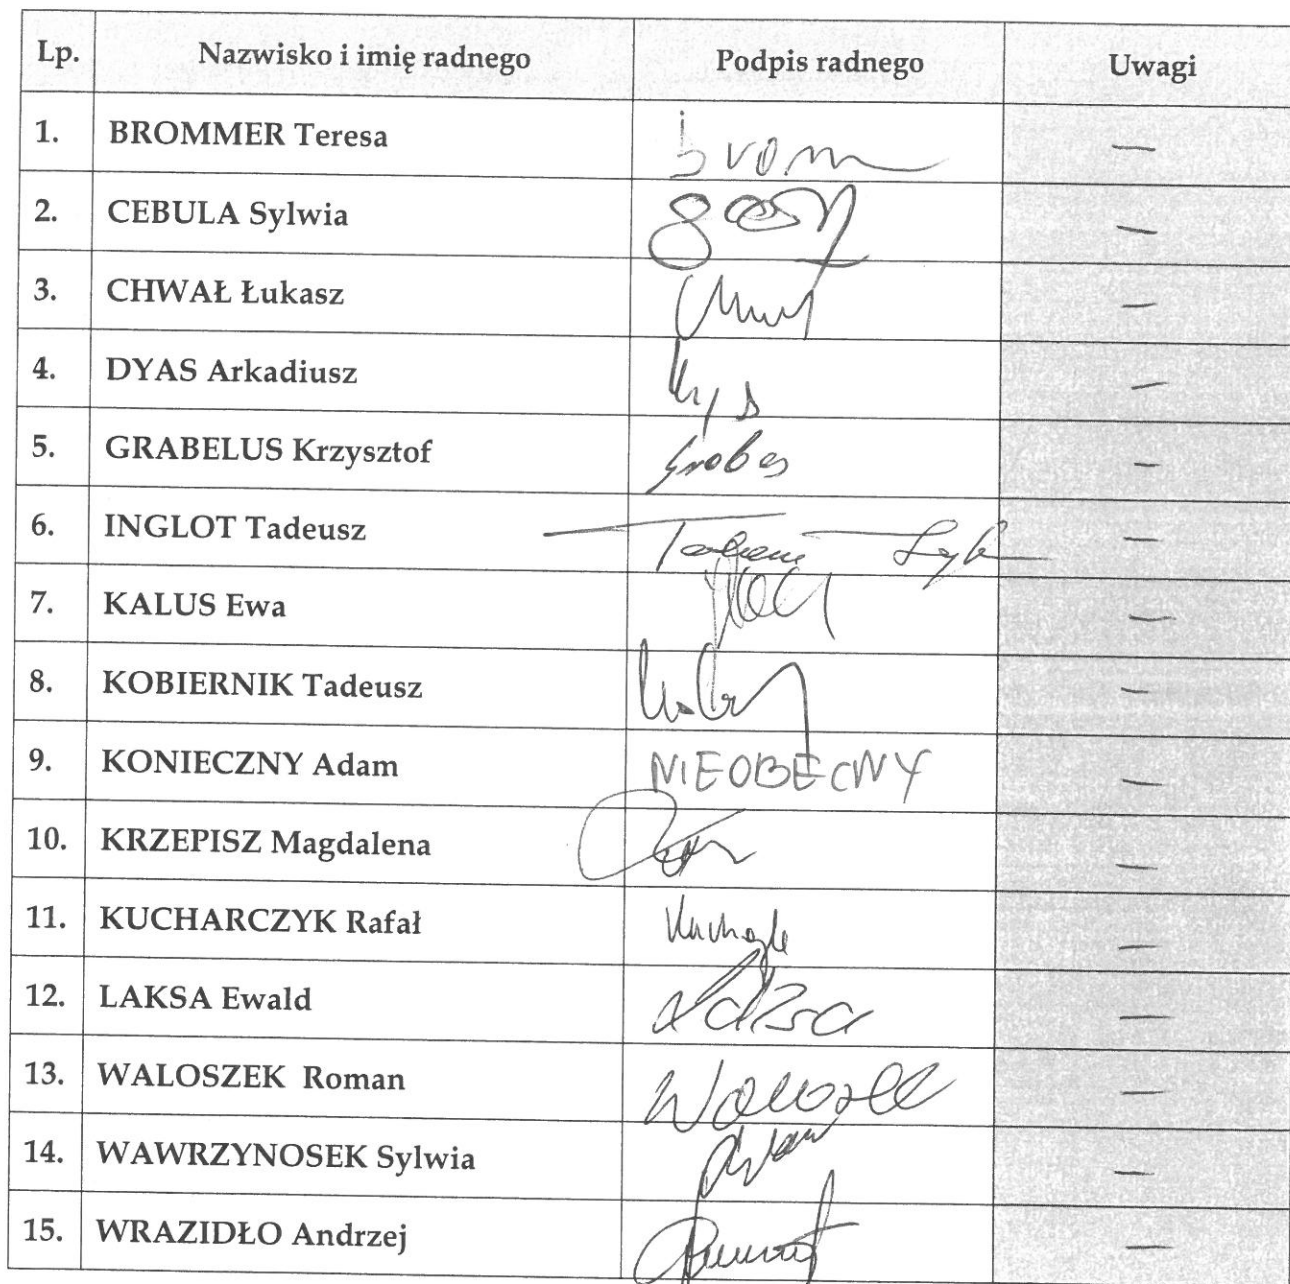 Lp. Nazwisko i imię radnego Podpis radnego Uwagi
1. BROMMER Teresa Brom —
2. CEBULA Sylwia —
3. CHWAŁ Łukasz —
4. DYAS Arkadiusz —
5. GRABELUS Krzysztof —
6. INGLOT Tadeusz —
7. KALUS Ewa —
8. KOBIERNIK Tadeusz —
9. KONIECZNY Adam NIEOBECNY —
10. KRZEPISZ Magdalena —
11. KUCHARCZYK Rafał —
12. LAKSA Ewald Laksa —
13. WALOSZEK Roman —
14. WAWRZYNOSEK Sylwia —
15. WRAZIDŁO Andrzej —